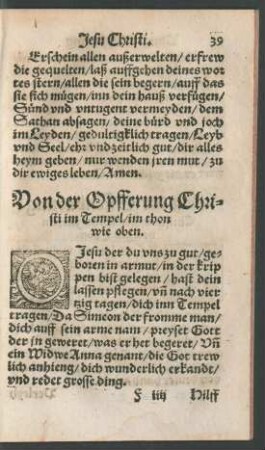 Jesu Christi. 39
Erschein allen außerwelten / erfrew
die gequelten / laß auffgehen deines wor
tes stern / allen die sein begern / auff das
sie sich mügen / inn dein hauß verfügen /
Sünd vnd vntugent vermeyden / dem
Sathan absagen / deine bürd vnd joch
im Leyden / gedultigklich tragen / Leyb
vnd Seel / ehr vnd zeitlich gut / dir alles
heym geben / nur wenden jren mut / zu
dir ewiges leben / Amen.
Von der Opfferung Chri-
sti im Tempel / im thon
wie oben.
O Jesu der du vns zu gut / ge-
boren in armut / in der kripp
pen bist gelegen / hast dein
lassen pflegen / vñ nach vier
tzig tagen / dich inn Tempel
tragen / Da Simeon der fromme man /
dich auff sein arme nam / preyset Gott
der jn geweret / was er het begeret / Vñ
ein Widwe Anna genant / die Got trew
lich anhieng / dich wunderlich erkandt /
vnd redet grosse ding.
F iiij Hilff